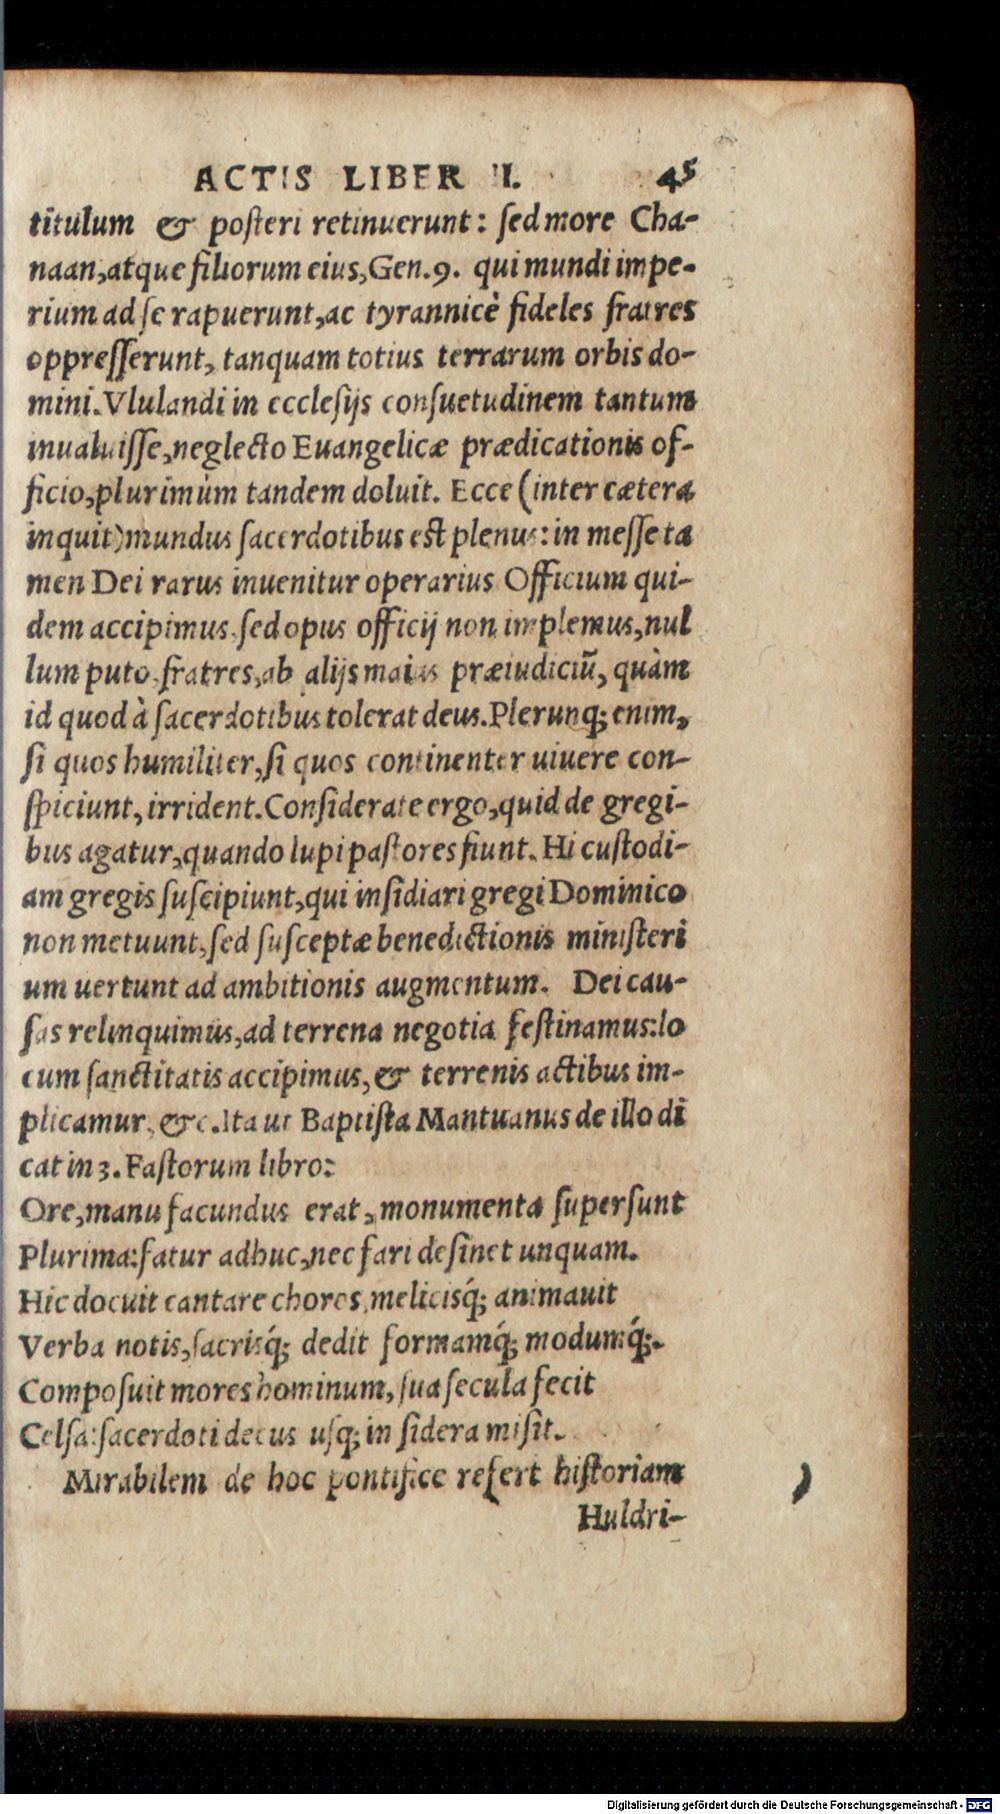 ACTIS LIBER II. 45
titulum & poſteri retinuerunt: ſed more Cha-
naan, atque filiorum eius, Gen. 9. qui mundi impe-
rium ad ſe rapuerunt, ac tyrannicè fideles fratres
oppreſſerunt, tanquam totius terrarum orbis do-
mini. Vlulandi in eccleſijs conſuetudinem tantum
inualuiſſe, neglecto Euangelicæ prædicationis of-
ficio, plurimùm tandem doluit. Ecce (inter cætera
inquit) mundus ſacerdotibus eſt plenus: in meſſe ta
men Dei rarus inuenitur operarius Officium qui-
dem accipimus, ſed opus officij non implemus, nul
lum puto, fratres, ab alijs maius præiudiciū, quàm
id quod à ſacerdotibus tolerat deus. Plerunq; enim,
ſi quos humiliter, ſi quos continenter uiuere con-
ſpiciunt, irrident. Conſiderate ergo, quid de gregi-
bus agatur, quando lupi paſtores fiunt. Hi cuſtodi-
am gregis ſuſcipiunt, qui inſidiari gregi Dominico
non metuunt, ſed ſuſceptæ benedictionis miniſteri
um uertunt ad ambitionis augmentum. Dei cau-
ſas relinquimus, ad terrena negotia feſtinamus: lo
cum ſanctitatis accipimus, & terrenis actibus im-
plicamur, &c. Ita ut Baptiſta Mantuanus de illo di
cat in 3. Faſtorum libro:
Ore, manu facundus erat, monumenta ſuperſunt
Plurima: fatur adhuc, nec fari deſinet unquam.
Hic docuit cantare choros, meliciſq́; animauit
Verba notis, ſacriſq́; dedit formamq́; modumq́;.
Compoſuit mores hominum, ſua ſecula fecit
Celſa: ſacerdoti decus uſq; in ſidera miſit.
Mirabilem de hoc pontifice refert hiſtoriam
Huldri-
Digitalisierung gefördert durch die Deutsche Forschungsgemeinschaft - DFG